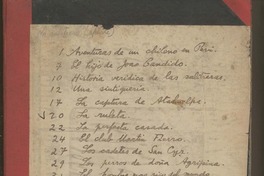 1 Aventuras de un chileno en Perú.
7 El hijo de Joao Candido.
10 Historia verídica de las salitreras.
12 Una sinterquería
17 La captura de Atahualpa.
20 La ruleta.
22 La perfecta casada.
24 El club Machi Perro.
27 Los cadetes de San Cyr.
29 Los perros de doña Agripina.